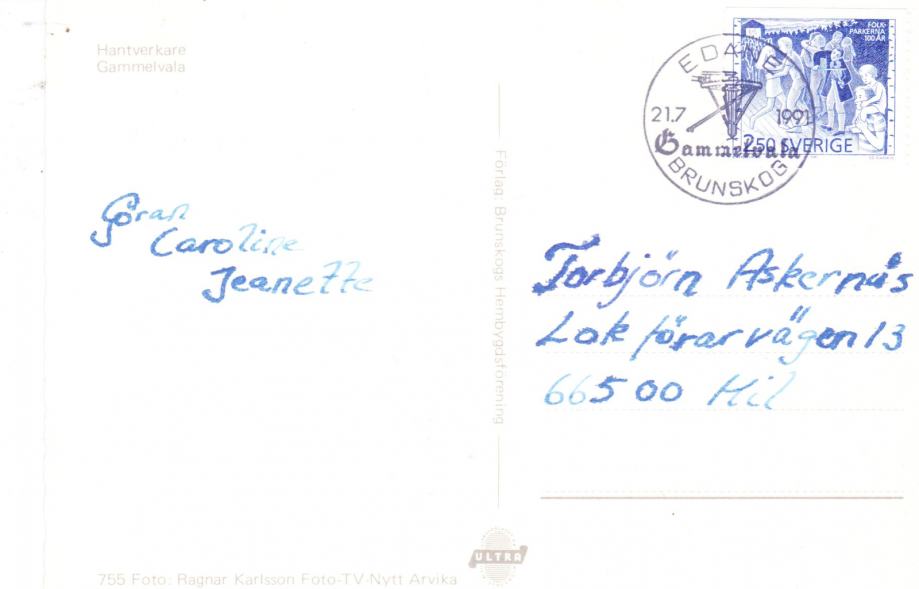 Hantverkare
Gammelvala
FOLK-
PARKERNA
100 ÅR
EDANE
21.7 1991
Gammelvala
BRUNSKOG
2.50 SVERIGE
Göran
Caroline
Jeanette
Förlag: Brunskogs Hembygdsförening
Torbjörn Askernäs
Lokförarvägen 13
66500 Kil
ULTRA
755 Foto: Ragnar Karlsson Foto-TV-Nytt Arvika